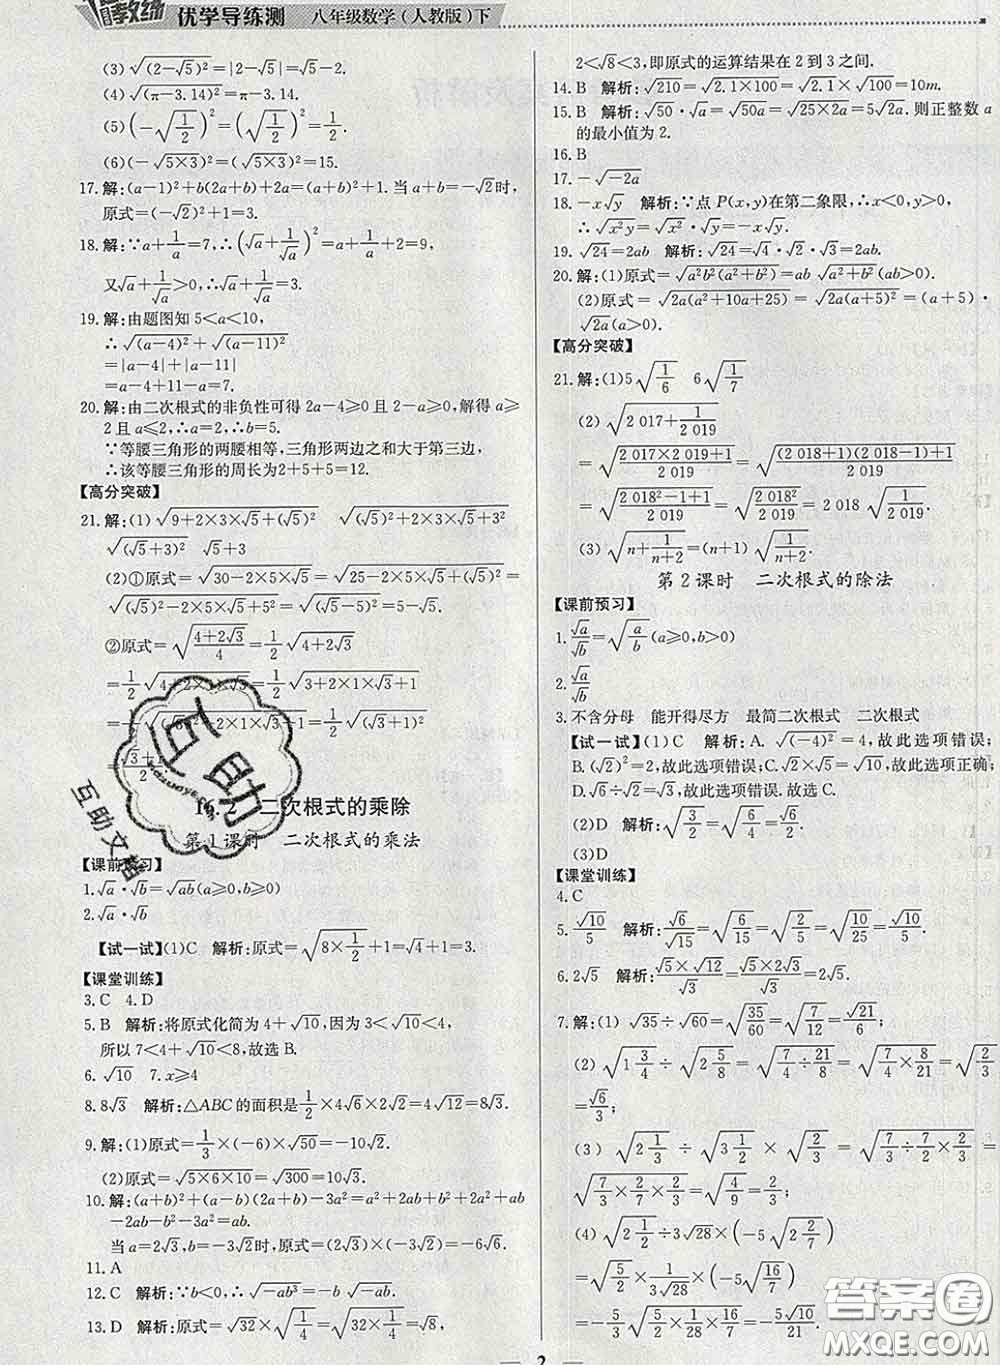 優学导练测 八年级数学（人教版）下
(3) √((2-√5)²)=|2-√5|=√5-2.
(4) √((π-3.14)²)=π-3.14.
(5) (-√(1/2))²=(√(1/2))²=1/2.
(6)(-√(5×3))²=(√(5×3))²=15.
17. 解:(a-1)²+b(2a+b)+2a=(a+b)²+1. 当 a+b=-√2时,
原式=(-√2)²+1=3.
18. 解:∵a+1/a=7,∴(√a+1/√a)²=a+1/a+2=9,
又∵√a+1/√a>0,∴√a+1/√a=3.
19. 解:由题图知 5<a<10,
∴√((a-4)²)+√((a-11)²)
=|a-4|+|a-11|
=a-4+11-a=7.
20. 解:由二次根式的非负性可得 2a-4≥0 且 2-a≥0,解得 a≥
2且 a≤2,∴a=2,∴b=5.
∵等腰三角形的两腰相等,三角形两边之和大于第三边,
∴该等腰三角形的周长为2+5+5=12.
【高分突破】
21. 解:(1) √(9+2×3×√5+(√5)²) √((√5)²+2×3×√5+3²)
√((√5+3)²) √5+3
(2)①原式=√(30-2×5×√5)=√(25-2×5×√5+5)=
√((√5)²-2×5×√5+5²)=√((√5-5)²)=5-√5.
②原式=√((4+2√3)/4)=1/2√(4+2√3)
=1/2√(4+2×1×√3)=1/2√(3+2×1×√3+1)
=1/2√((√3)²+2×1×√3+1)=1/2√((√3+1)²)
=(√3+1)/2
16.2 二次根式的乘除
第1课时 二次根式的乘法
【课前预习】
1. √a·√b=√ab(a≥0,b≥0)
2. √a·√b
【试一试】(1)C 解析:原式=√(8×1/2)+1=√4+1=3.
【课堂训练】
3. C 4. D
5. B 解析:将原式化简为 4+√10,因为 3<√10<4,
所以 7<4+√10<8,故选 B.
6. √10 7. x≥4
8. 8√3 解析:△ABC 的面积是1/2×4√6×2√2=4√12=8√3.
9. 解:(1)原式=1/3×(-6)×√50=-10√2.
(2)原式=√(5×6×10)=√300=10√3.
10. 解:(a+b)²+(a-b)(2a+b)-3a²=a²+2ab+b²+2a²+ab
-2ab-b²-3a²=ab.
当 a=2√3,b=-√2时,原式=(2√3)×(-√2)=-2√6.
11. A
12. C 解析:∵b<0,∴√(-ab³)=-b√(-ab).
13. D 解析:原式=√32×√(1/4)=√(32×1/4)=√8,
2<√8<3,即原式的运算结果在 2 到 3 之间.
14. B 解析:√210=√(2.1×100)=√2.1×√100=10m.
15. B 解析:√50·√a=√50a=√(25×2a)=5√2a. 则正整数 a
的最小值为 2.
16. B
17. -√(-2a)
18. -x√y 解析:∵点 P(x,y)在第二象限,∴x<0,y>0,
∴√(x²y)=√(x²)·√y=-x√y.
19. √24=2ab 解析:√24=√4·√2·√3=2ab.
20. 解:(1)原式=√(a²b²(a²+b²))=ab√(a²+b²)(ab≥0).
(2)原式=√(2a(a²+10a+25))=√(2a(a+5)²)=(a+5)·
√2a(a>0).
【高分突破】
21. 解:(1)5√(1/6) 6√(1/7)
(2)√(2 017+1/2 019)
=√((2 017×2 019+1)/2 019)=√(((2 018+1)(2 018-1)+1)/2 019)
=√((2 018²-1+1)/2 019)=√(2 018²/2 019)=2 018√(1/2 019).
(3)√(n+1/(n+2))=(n+1)√(1/(n+2)).
第2课时 二次根式的除法
【课前预习】
1. √a/√b=√(a/b)(a≥0,b>0)
2. √a/√b
3. 不含分母 能开得尽方 最简二次根式 二次根式
【试一试】(1)C 解析:A. √((-4)²)=4,故此选项错误;
B. (√2)²=2,故此选项错误;C. √2×√3=√6,故此选项正确;
D. √6÷√2=√3,故此选项错误. 故选 C.
(2)D 解析:√3/√2=√6/√4=√6/2.
(3)D
【课堂训练】
4. C
5. √10/5 解析:√6/√15=√(6/15)=√(2/5)=√(10/25)=√10/5.
6. 2√5 解析:(√5×√12)/√3=(√5×2√3)/√3=2√5.
7. 解:(1) √35÷√60=√(35/60)=√(7/12)=√21/6;
(2) √(1 3/4)÷√(2 5/8)=√(7/4÷21/8)=√(7/4×8/21)=√(2/3)=
√6/3;
(3) √(2 1/3)÷√(3 1/2)×√(2/3)=√(7/3÷7/2×2/3)=
√(7/3×2/7×2/3)=√(4/9)=2/3;
(4) √(2 1/2)÷3√28×(-5√(2 2/7))
=√(5/2)×1/(3√28)×(-5√(16/7))
=-5/3√(5/2×1/28×16/7)=-5√10/21.
2
互助
互助文档
答案圈
MXQE.COM